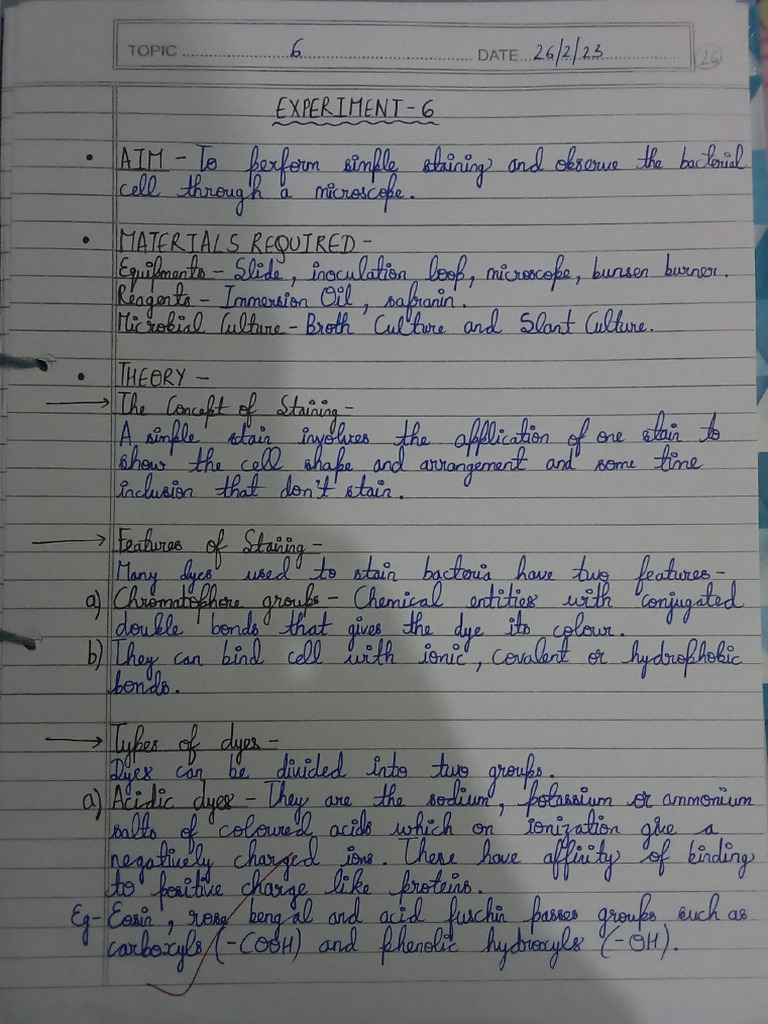 TOPIC 6 DATE 26/2/23 26
EXPERIMENT-6
• AIM - To perform simple staining and observe the bacterial
cell through a microscope.
• MATERIALS REQUIRED -
Equipments - Slide, inoculation loop, microscope, bunsen burner.
Reagents - Immersion Oil, safranin.
Microbial Culture - Broth Culture and Slant Culture.
• THEORY -
→ The Concept of Staining -
A simple stain involves the application of one stain to
show the cell shape and arrangement and some time
inclusion that don't stain.
→ Features of Staining -
Many dyes used to stain bacteria have two features -
a) Chromatophore groups - Chemical entities with conjugated
double bonds that gives the dye its colour.
b) They can bind cell with ionic, covalent or hydrophobic
bonds.
→ Types of dyes -
Dyes can be divided into two groups.
a) Acidic dyes - They are the sodium, potassium or ammonium
salts of coloured acids which on ionization give a
negatively charged ions. These have affinity of binding
to positive charge like proteins.
Eg- Eosin, rose bengal and acid fuschin passes groups such as
carboxyls (-COOH) and phenolic hydroxyls (-OH).